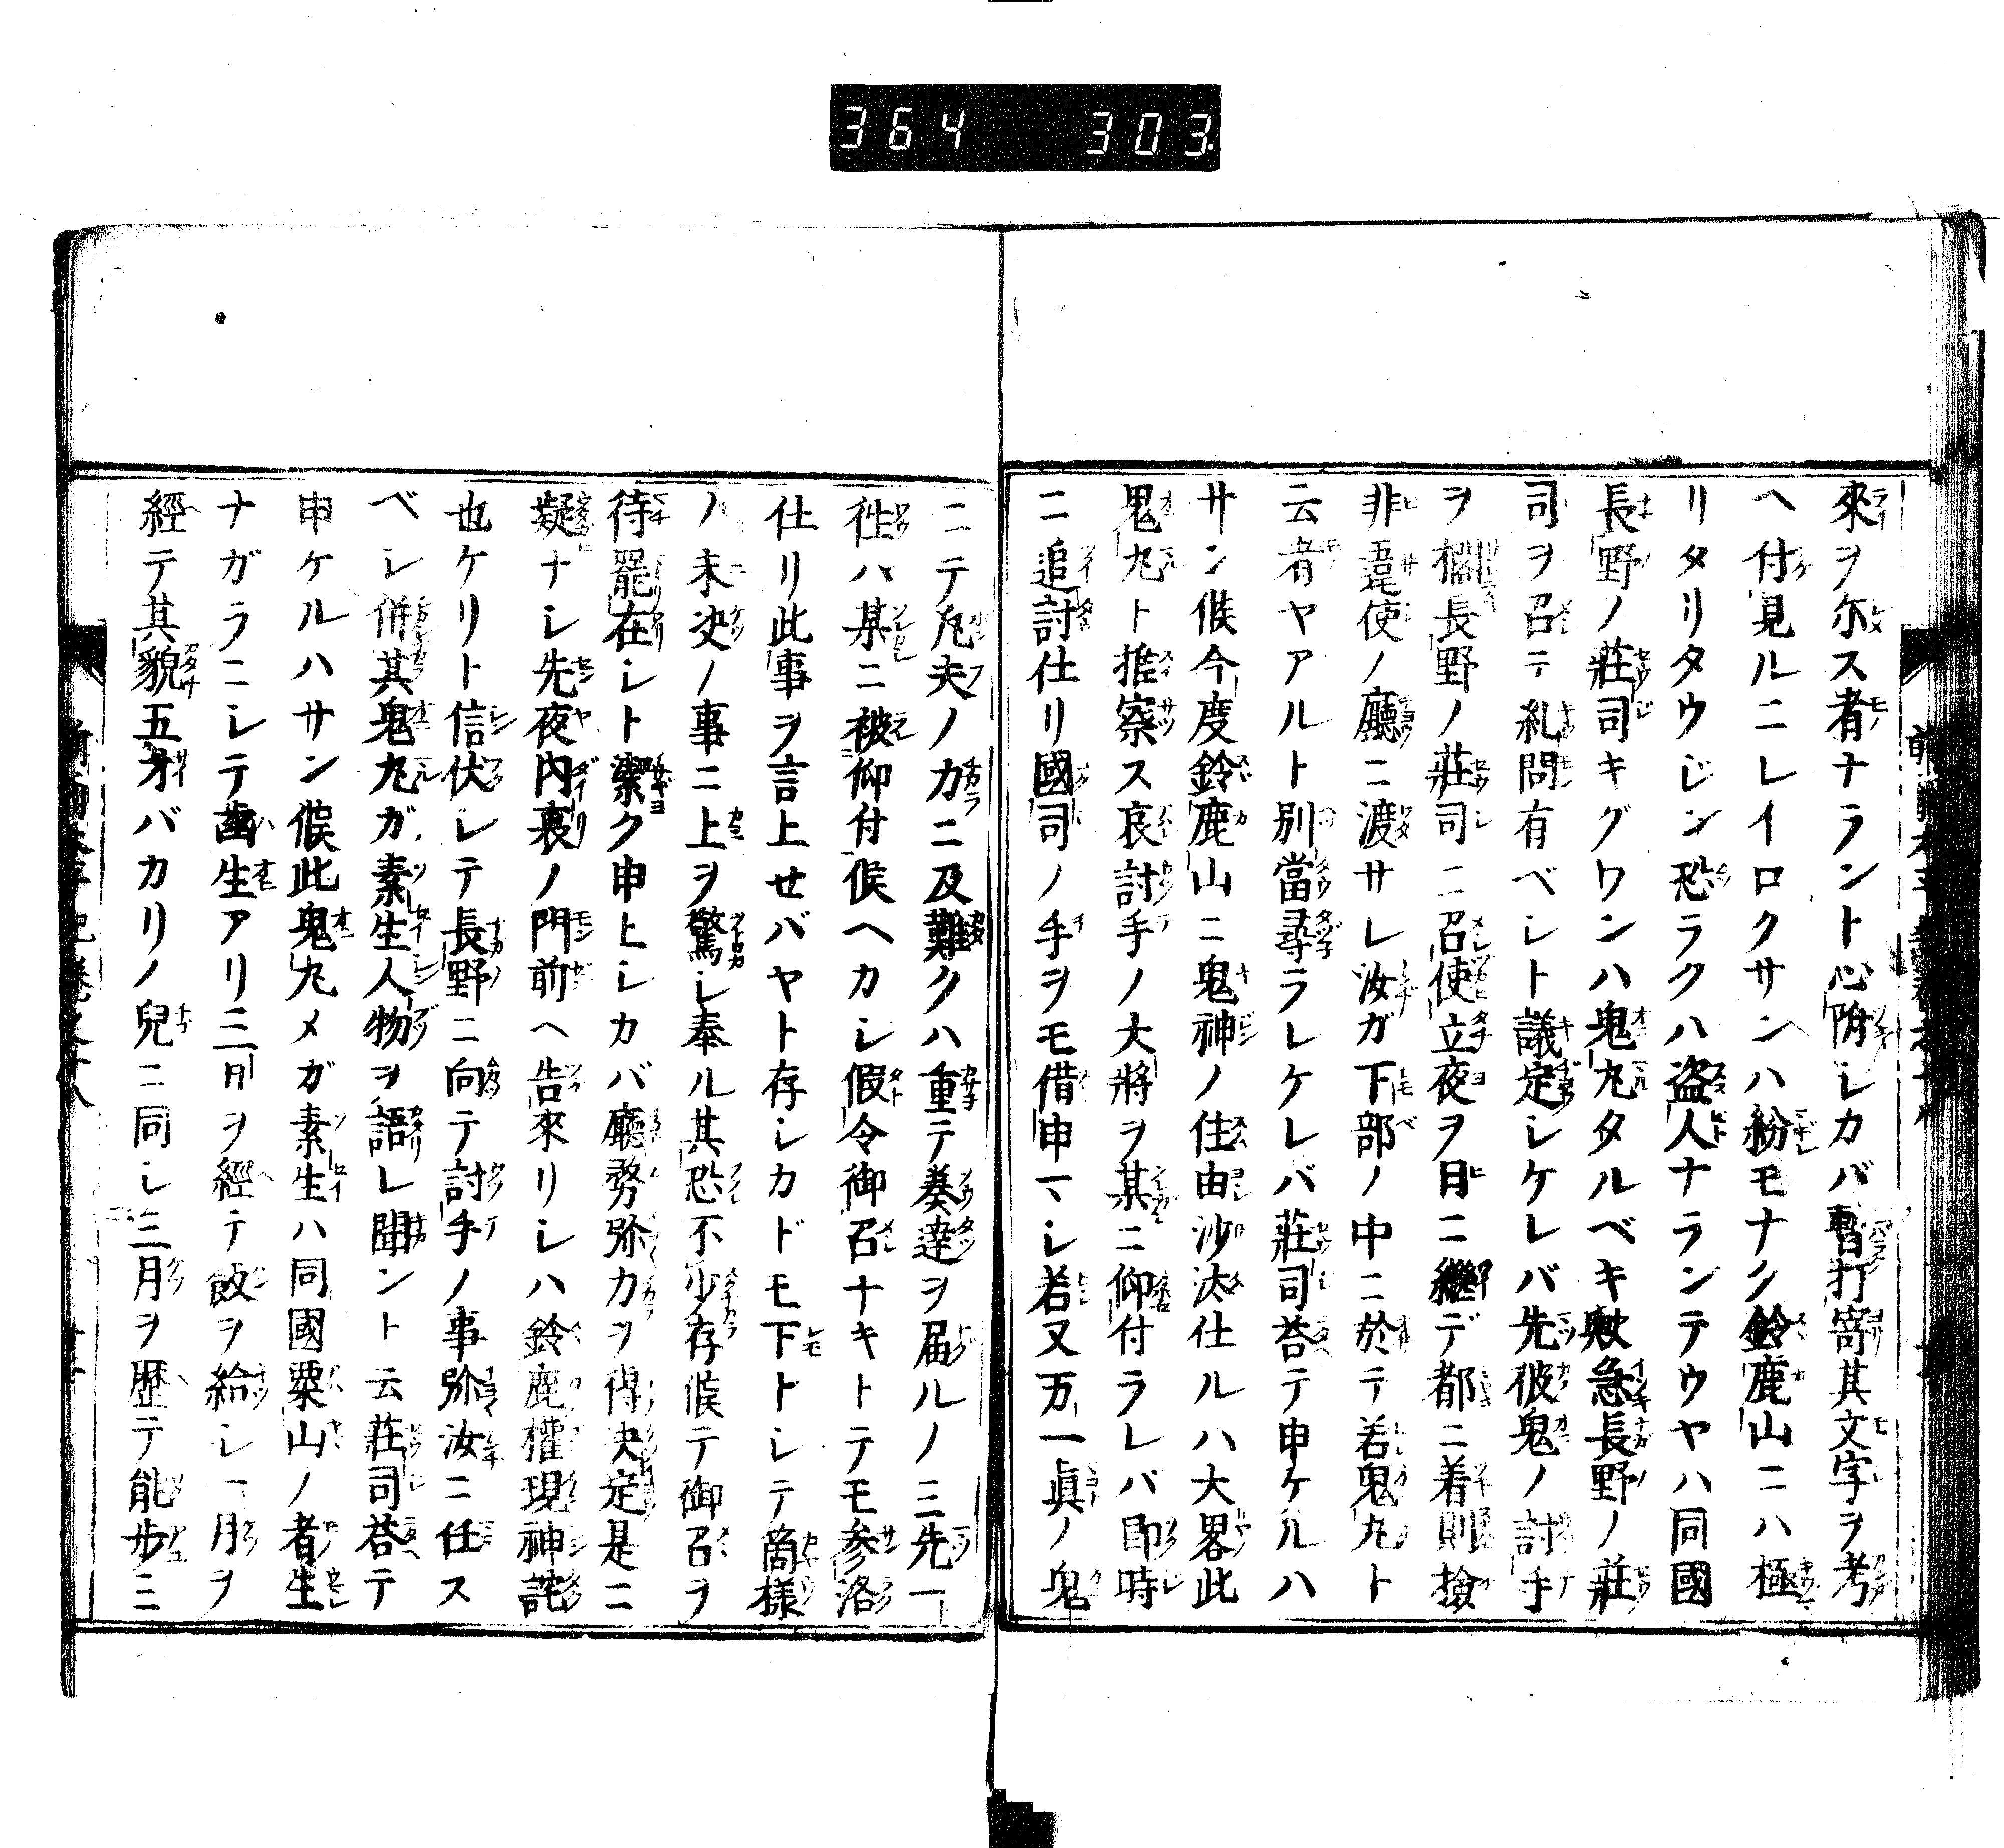 364 303.
來ヲ尓ス者ナラント心附シカバ暫打寄其文字ヲ考
ヘ付見ルニシイロクサンハ紛モナク鈴鹿山ニハ極
リタリタウジン恐ラクハ盗人ナランテウヤハ同國
長野ノ莊司キグワンハ鬼丸タルベキ歟急長野ノ莊
司ヲ召テ糺問有ベシト議定シケレバ先彼鬼ノ討手
ヲ 長野ノ莊司ニ召使立夜ヲ日ニ継デ都ニ着則撿
非違使ノ廳ニ渡サレ汝ガ下部ノ中ニ於テ若鬼丸ト
云者ヤアルト別當尋ラレケレバ莊司荅テ申ケルハ
サン候今度鈴鹿山ニ鬼神ノ住由沙汰仕ルハ大畧此
鬼丸ト推察ス哀討手ノ大將ヲ某ニ仰付ラレバ即時
ニ追討仕リ國司ノ手ヲモ借申マシ若又万一眞ノ鬼
ニテ凢夫ノ力ニ及難クハ重テ奏達ヲ届ルノ三先一
徃ハ某ニ被仰付候ヘカシ假令御召ナキトテモ参洛
仕リ此事ヲ言上せバヤト存シカドモ下トシテ啇様
ノ未决ノ事ニ上ヲ驚シ奉ル其恐不少存候テ御召ヲ
待罷在シト潔ク申上シカバ廳努弥力ヲ得决定是ニ
疑ナシ先夜内裏ノ門前ヘ告來リシハ鈴鹿權現神詫
也ケリト信伏シテ長野ニ向テ討手ノ事弥汝ニ任ス
ベシ併其鬼丸ガ素生人物ヲ語レ聞ント云莊司荅テ
申ケルハサン候此鬼丸メガ素生ハ同國粟山ノ者生
ナガラニシテ齒生アリ三日ヲ經テ飯ヲ給シ一月ヲ
經テ其貌五才バカリノ兒ニ同シ三月ヲ歴テ能歩三